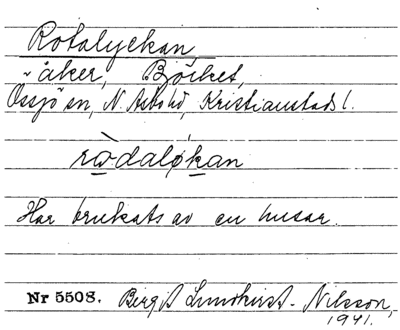 Rotalyckan,
~ åker, Björket,
Össjö sn, N. Åsbo hd, Kristianstads l.
ròdaløkan
Har brukats av en husar.
Nr 5508. Birgit Lundkvist-Nilsson,
1941.